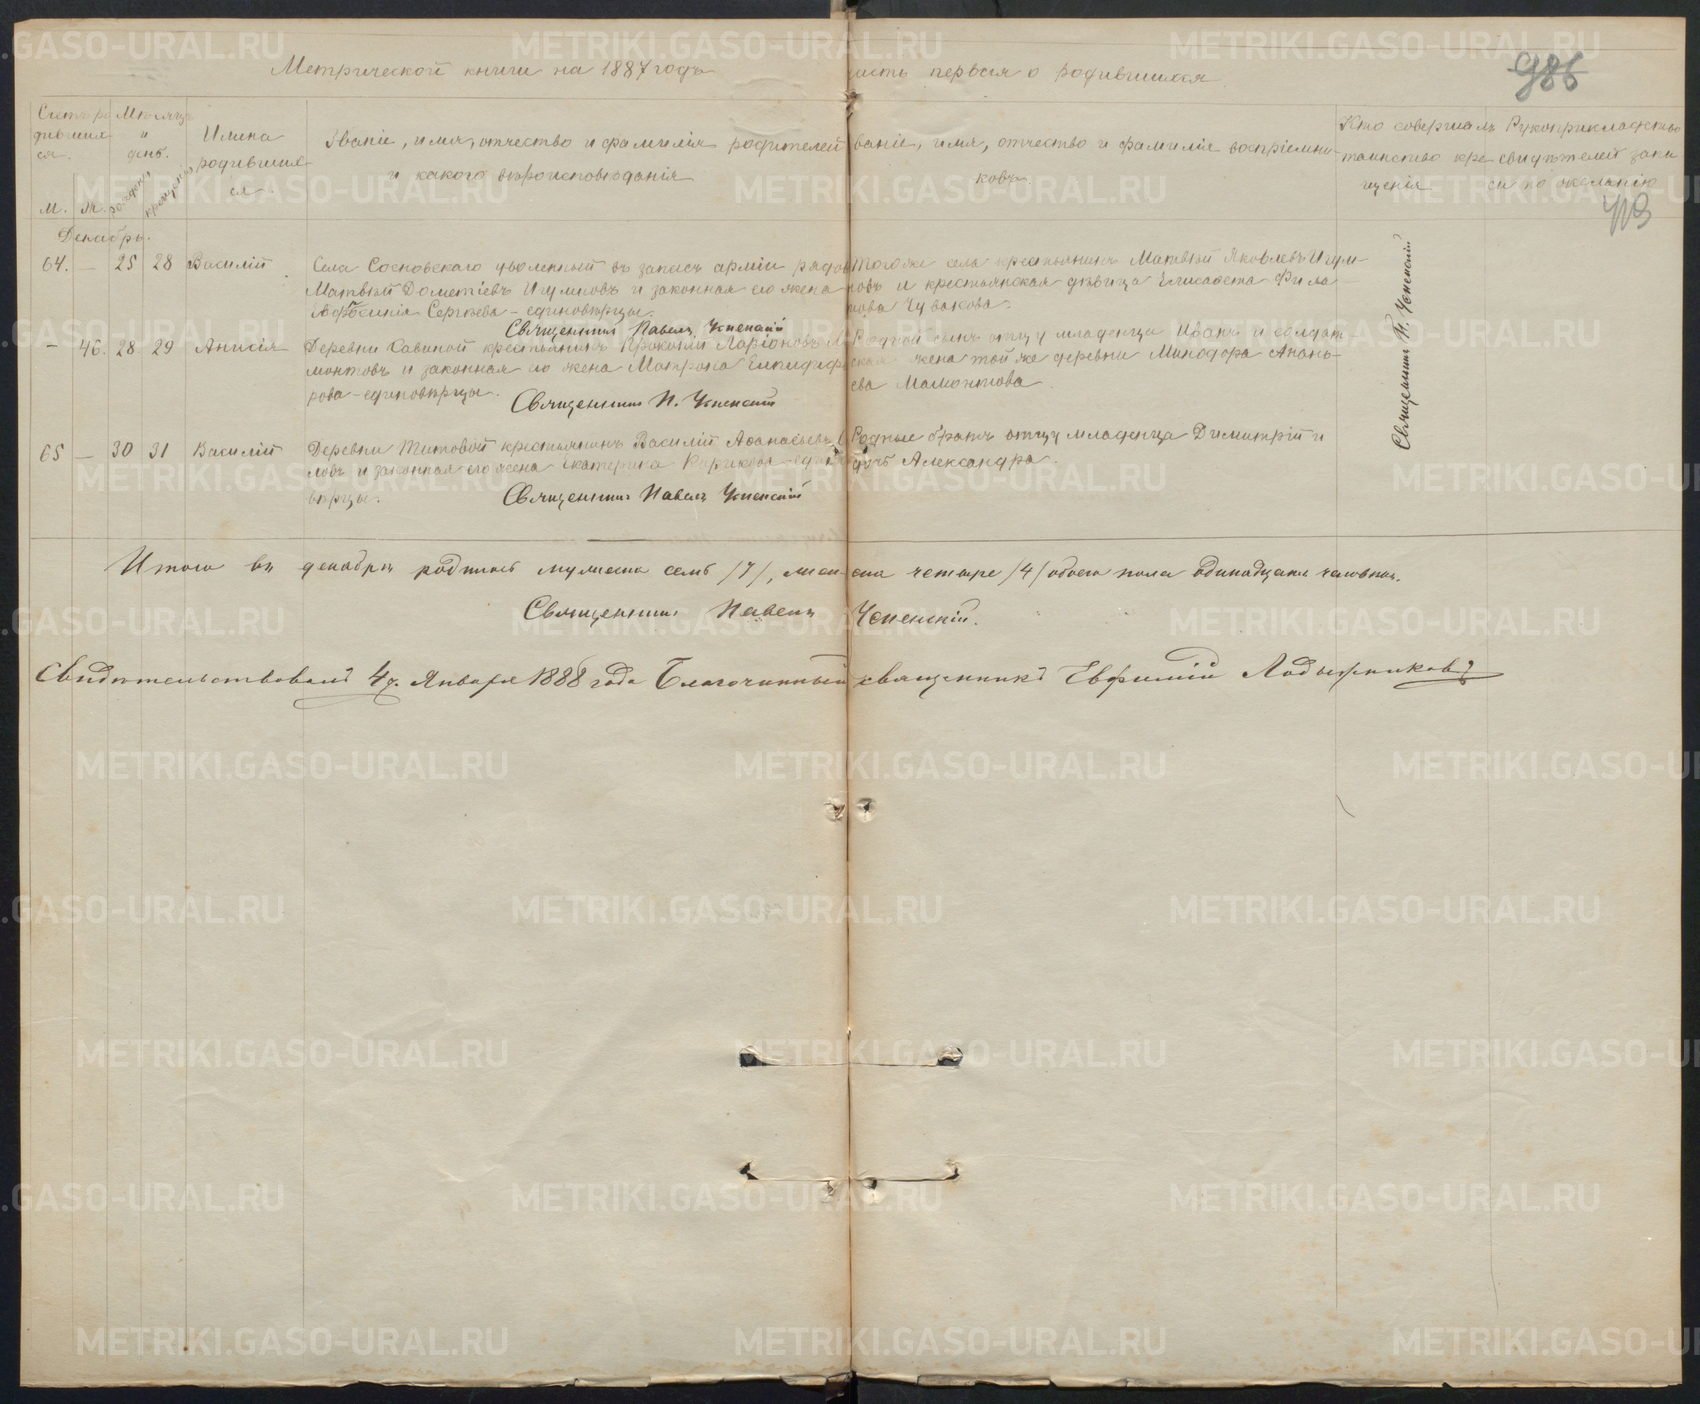 Метрической книги на 1887 годъ часть первая о родившихся
986
Счетъ ро
дивших
ся.
М. Ж.
Мѣсяцъ
и
день.
рожденія
крещенія
Имена
родивших-
ся.
Званіе, имя, отчество и фамилія родителей
и какого вѣроисповѣданія
Званіе, имя, отчество и фамилія воспріемни-
ковъ.
Кто совершалъ
таинство кре
щенія
Рукоприкладство
свидѣтелей запи
си по желанію
Декабрь.
64. — 25 28 Василій
Села Сосновскаго уволенный въ запасъ арміи рядов
Матвѣй Дометіевъ Игумновъ и законная его жена
Сергѣева – единовѣрцы.
Священникъ Павелъ Успенскій
Того же села крестьянинъ Матвѣй Яковлевъ Игум-
новъ и крестьянская дѣвица Елисавета Фила-
това Чувакова.
— 46. 28 29 Анисія
Деревни Савиной крестьянинъ Прокопій Ларіоновъ Ма
монтовъ и законная его жена Матрона Елпидифо
рова – единовѣрцы.
Священникъ П. Успенскій
Родной сынъ отцу младенца Иванъ и солдат-
ская жена той же деревни Минодора Анань-
ева Мамонтова.
65 — 30 31 Василій
Деревни Титовой крестьянинъ Василій Аѳанасьевъ
ловъ и законная его жена Екатерина Кирикова – едино
вѣрцы.
Священникъ Павелъ Успенскій
Родные братъ отцу младенца Димитрій и
дочь Александра.
Священникъ П. Успенскій
Итого въ декабрѣ родилось мужеска семь /7/, жен-ска четыре /4/ обоего пола одинадцать человѣкъ.
Священникъ Павелъ Успенскій.
Свидѣтельствовалъ 4 д. Января 1888 года Благочинный священникъ Евфимій Лодыжниковъ
METRIKI.GASO-URAL.RU